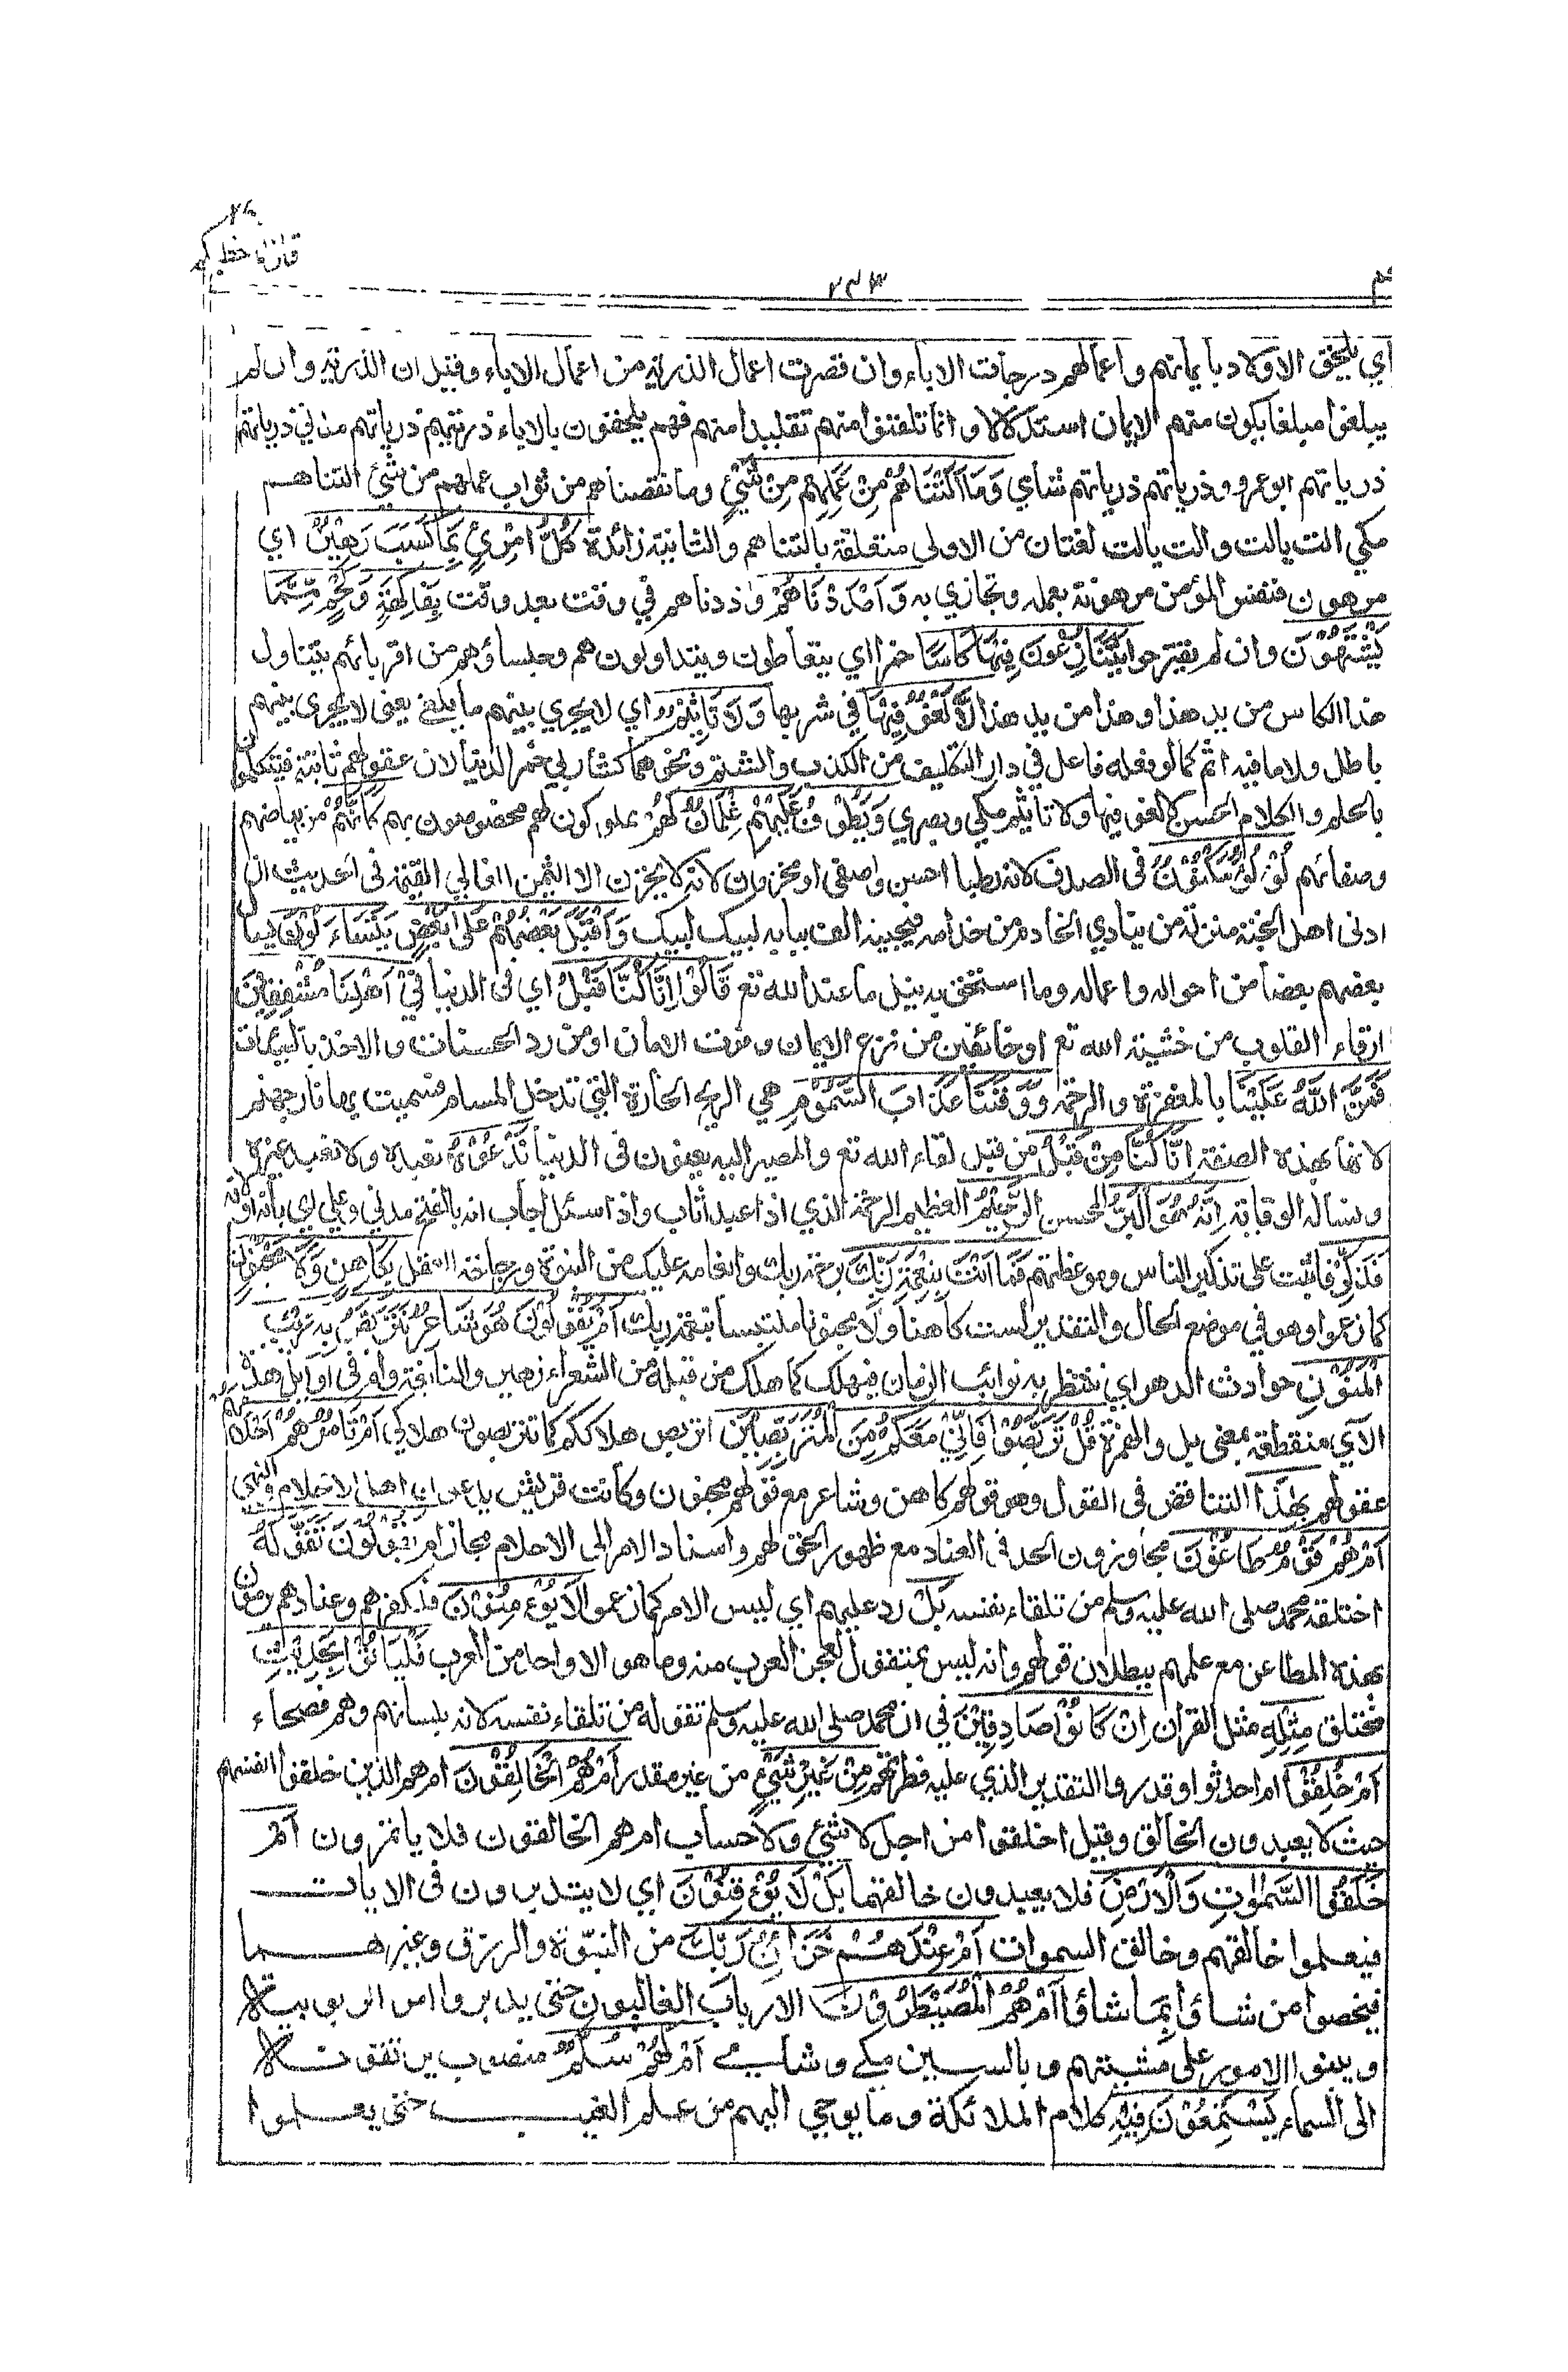 اي يلحق الاولاد بايمانهم واعمالهم درجات الاباء وان قصرت اعمال الذرية من اعمال الاباء وقيل ان الذرية وان لم
يبلغوا مبلغا يكون منهم الايمان استدلالا وانما تلقنوا منهم تقليدا منهم فهم يلحقون بالاباء ذريتهم ذرياتهم مدني ذرياتهم
ذرياتهم ابو عمرو وذرياتهم ذرياتهم شامي وَمَا اَلَتْنَاهُمْ مِنْ عَمَلِهِمْ مِنْ شَيْئٍ وما نقصناهم من ثواب عملهم من شيئ التناهم
مكي الت يالت والت يالت لغتان من الاولى متعلقة بالتناهم والثانية زائدة كُلُّ امْرِئٍ بِمَا كَسَبَ رَهِيْنٌ اي
مرهون فنفس المؤمن مرهونة بعمله وتجازي به وَاَمْدَدْنَاهُمْ وزدناهم في وقت بعد وقت بِفَاكِهَةٍ وَلَحْمٍ مِّمَّا
يَشْتَهُوْنَ وان لم يقترحوا يَتَنَازَعُوْنَ فِيْهَا كَاْسًا خمرا اي يتعاطون ويتداولون هم وجلساؤهم من اقربائهم يتناول
هذا الكاس من يد هذا وهذا من يد هذا لَا لَغْوٌ فِيْهَا في شربها وَلَا تَاْثِيْمٌ اي لا يجري بينهم ما يلغى يعنى لا يجرى بينهم
باطل ولا ما فيه اثم كما لو فعله فاعل في دار التكليف من الكذب والشتم ونحوهما كشاربي خمر الدنيا لان عقولهم ثابتة فيتكلمون
بالحلم والكلام الحسن لا لغو فيها ولا تاثيم مكي وبصري وَيَطُوْفُ عَلَيْهِمْ غِلْمَانٌ لَّهُمْ مملوكون لهم مخصوصون بهم كَاَنَّهُمْ من بياضهم
وصفائهم لُؤْلُؤٌ مَكْنُوْنٌ فى الصدف لانه رطبا احسن واصفى او مخزون لانه لا يخزن الا الثمين الغالي القيمة فى الحديث ان
ادنى اهل الجنة منزلة من ينادي الخادم من خدامه فيجيبه الف ببابه لبيك لبيك وَاَقْبَلَ بَعْضُهُمْ عَلَى بَعْضٍ يَتَسَاءَلُوْنَ يسال
بعضهم بعضا من احواله واعماله وما استحق به نيل ما عند الله تع قَالُوْا اِنَّا كُنَّا قَبْلُ اي فى الدنيا فِيْ اَهْلِنَا مُشْفِقِيْنَ
ارقاء القلوب من خشية الله تع او خائفين من نزع الايمان وفوت الامان او من رد الحسنات والاخذ بالسيئات
فَمَنَّ اللّٰهُ عَلَيْنَا بالمغفرة والرحمة وَوَقٰنَا عَذَابَ السَّمُوْمِ هي الريح الحارة التي تدخل المسام فسميت بها نار جهنم
لانها بهذه الصفة اِنَّا كُنَّا مِنْ قَبْلُ من قبل لقاء الله تع والمصير اليه يعنون فى الدنيا نَدْعُوْهُ نعبده ولا نعبد غيره
ونساله الوقاية اِنَّهُ هُوَ الْبَرُّ المحسن الرَّحِيْمُ العظيم الرحمة الذي اذا عبد اثاب واذا سئل اجاب انه بالفتح مدني وعلي اي بانه او لانه
فَذَكِّرْ فاثبت على تذكير الناس وموعظتهم فَمَا اَنْتَ بِنِعْمَةِ رَبِّكَ برحمة ربك وانعامه عليك من النبوة ورجاحة العقل بِكَاهِنٍ وَّلَا مَجْنُوْنٍ
كما زعموا وهو في موضع الحال والتقدير لست كاهنا ولا مجنونا ملتبسا بنعمة ربك اَمْ يَقُوْلُوْنَ هُوَ شَاعِرٌ نَّتَرَبَّصُ بِهِ رَيْبَ
الْمَنُوْنِ حوادث الدهر اي ننتظر به نوائب الزمان فيهلك كما هلك من قبله من الشعراء زهير والنابغة وام فى اوائل هذه
الآي منقطعة بمعنى بل والهمزة قُلْ تَرَبَّصُوْا فَاِنِّيْ مَعَكُمْ مِنَ الْمُتَرَبِّصِيْنَ اتربص هلاككم كما تتربصون هلاكي اَمْ تَاْمُرُهُمْ اَحْلَامُهُمْ
عقولهم بِهٰذَا التناقض فى القول وهو قولهم كاهن وشاعر مع قولهم مجنون وكانت قريش يدعون اهل الاحلام والنهى
اَمْ هُمْ قَوْمٌ طَاغُوْنَ مجاوزون الحد فى العناد مع ظهور الحق لهم واسناد الامر الى الاحلام مجاز اَمْ يَقُوْلُوْنَ تَقَوَّلَهُ
اختلقه محمد صلى الله عليه وسلم من تلقاء نفسه بَلْ رد عليهم اي ليس الامر كما زعموا لَا يُؤْمِنُوْنَ فلكفرهم وعنادهم يرمون
بهذه المطاعن مع علمهم ببطلان قولهم وانه ليس بمتقول لعجز العرب منه وما هو الا واحد من العرب فَلْيَاْتُوْا بِحَدِيْثٍ
مختلق مِثْلِهِ مثل القرآن اِنْ كَانُوْا صَادِقِيْنَ في ان محمد صلى الله عليه وسلم تقوله من تلقاء نفسه لانه بلسانهم وهم فصحاء
اَمْ خُلِقُوْا ام احدثوا وقدروا التقدير الذي عليه فطرتهم مِنْ غَيْرِ شَيْئٍ من غير مقدر اَمْ هُمُ الْخَالِقُوْنَ ام هم الذين خلقوا انفسهم
حيث لا يعبدون الخالق وقيل اخلقوا من اجل لا شيئ ولا حساب ام هم الخالقون فلا ياتمرون اَمْ
خَلَقُوا السَّمٰوٰتِ وَالْاَرْضَ فلا يعبدون خالقهما بَلْ لَا يُوْقِنُوْنَ اي لا يتدبرون فى الايات
فيعلموا خالقهم وخالق السموات اَمْ عِنْدَهُمْ خَزَائِنُ رَبِّكَ من النبوة والرزق وغيرهما
فيخصوا من شاؤا بما شاؤا اَمْ هُمُ الْمُصَيْطِرُوْنَ الارباب الغالبون حتى يدبروا امر الربوبية
ويبنوا الامور على مشيتهم وبالسين مكي وشامي اَمْ لَهُمْ سُلَّمٌ منصوب يرتقون
الى السماء يَسْتَمِعُوْنَ فِيْهِ كلام الملائكة وما يوحى اليهم من علم الغيب حتى يعلموا